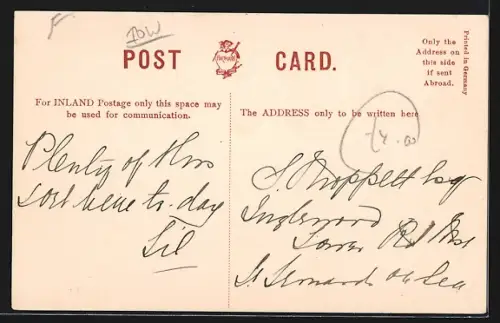 IOW
POST CARD.
Only the
Address on
this side
if sent
Abroad.
Printed in Germany
For INLAND Postage only this space may
be used for communication.
The ADDRESS only to be written here
4.00
Plenty of this
sort here to-day
Sil
S. Esq
Inglewood
Rd
St Leonards on Sea